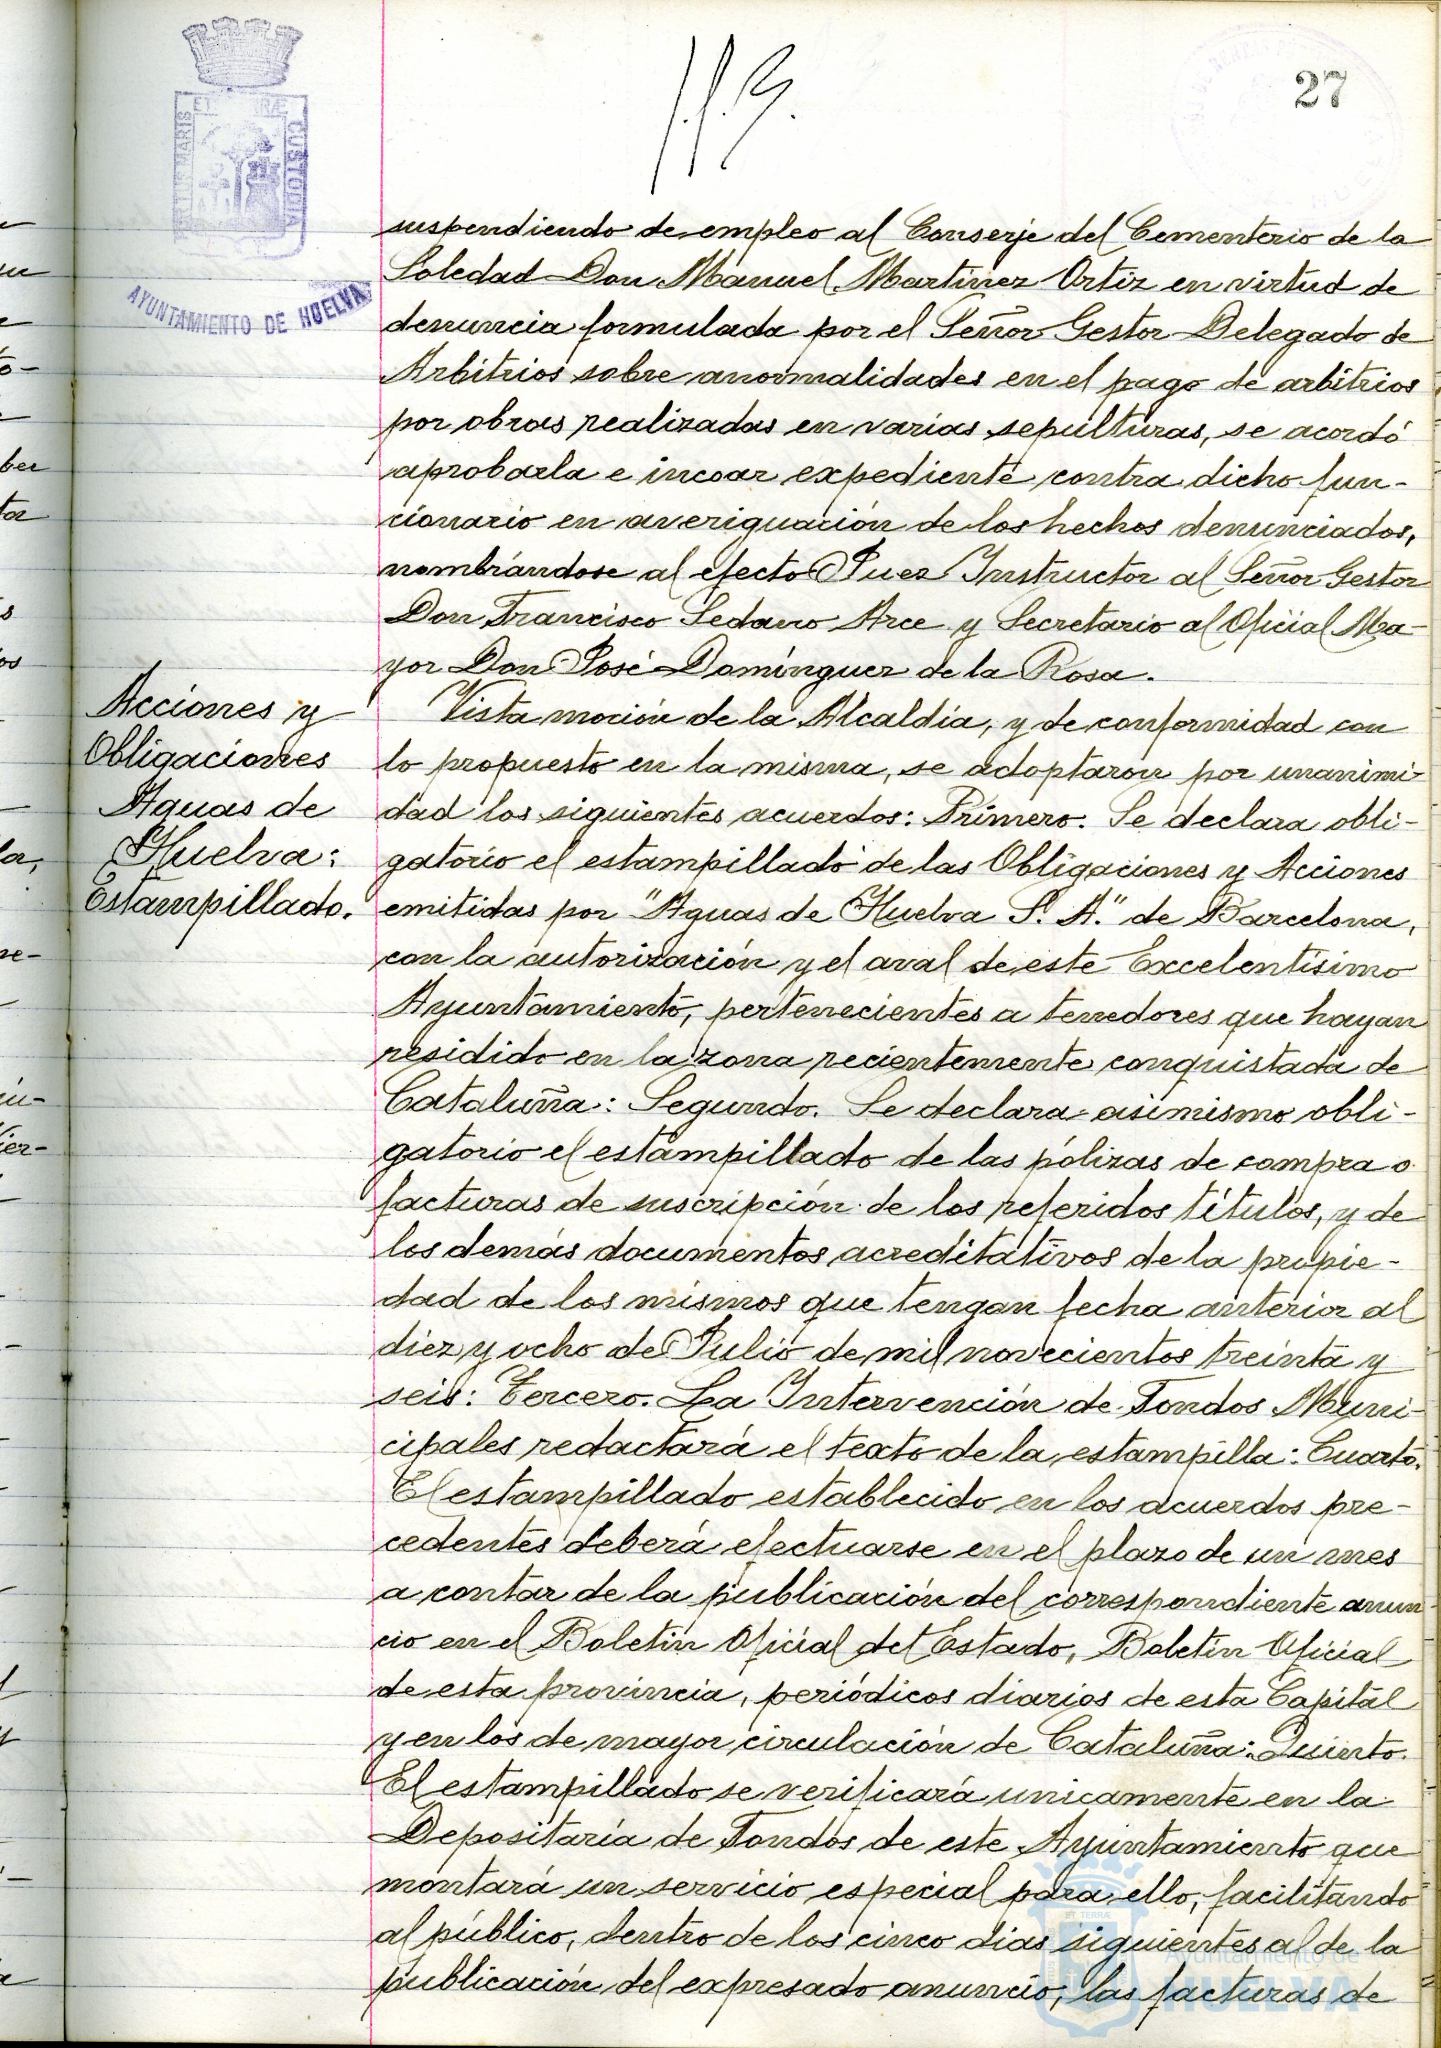 27
ET TERRÆ
MARIS
CUSTODIA
AYUNTAMIENTO DE HUELVA
suspendiendo de empleo al Conserje del Cementerio de la
Soledad Don Manuel Martínez Ortiz en virtud de
denuncia formulada por el Señor Gestor Delegado de
Arbitrios sobre anormalidades en el pago de arbitrios
por obras realizadas en varias sepulturas, se acordó
aprobarla e incoar expediente contra dicho fun-
cionario en averiguación de los hechos denunciados,
nombrándose al efecto Juez Instructor al Señor Gestor
Don Francisco Sedano Arce y Secretario al Oficial Ma-
yor Don José Domínguez de la Rosa.
Acciones y
Obligaciones
Aguas de
Huelva:
Estampillado.
Vista moción de la Alcaldía, y de conformidad con
lo propuesto en la misma, se adoptaron por unanimi-
dad los siguientes acuerdos: Primero. Se declara obli-
gatorio el estampillado de las Obligaciones y Acciones
emitidas por "Aguas de Huelva S. A." de Barcelona,
con la autorización y el aval de este Excelentísimo
Ayuntamiento, pertenecientes a tenedores que hayan
residido en la zona recientemente conquistada de
Cataluña: Segundo. Se declara asimismo obli-
gatorio el estampillado de las pólizas de compra o
facturas de suscripción de los referidos títulos, y de
los demás documentos acreditativos de la propie-
dad de los mismos que tengan fecha anterior al
diez y ocho de Julio de mil novecientos treinta y
seis: Tercero. La Intervención de Fondos Muni-
cipales redactará el texto de la estampilla: Cuarto.
El estampillado establecido en los acuerdos pre-
cedentes deberá efectuarse en el plazo de un mes
a contar de la publicación del correspondiente anun-
cio en el Boletín Oficial del Estado, Boletín Oficial
de esta provincia, periódicos diarios de esta Capital
y en los de mayor circulación de Cataluña: Quinto.
El estampillado se verificará unicamente en la
Depositaría de Fondos de este Ayuntamiento que
montará un servicio especial para ello, facilitando
al público, dentro de los cinco dias siguientes al de la
publicación del expresado anuncio, las facturas de
Ayuntamiento de
HUELVA